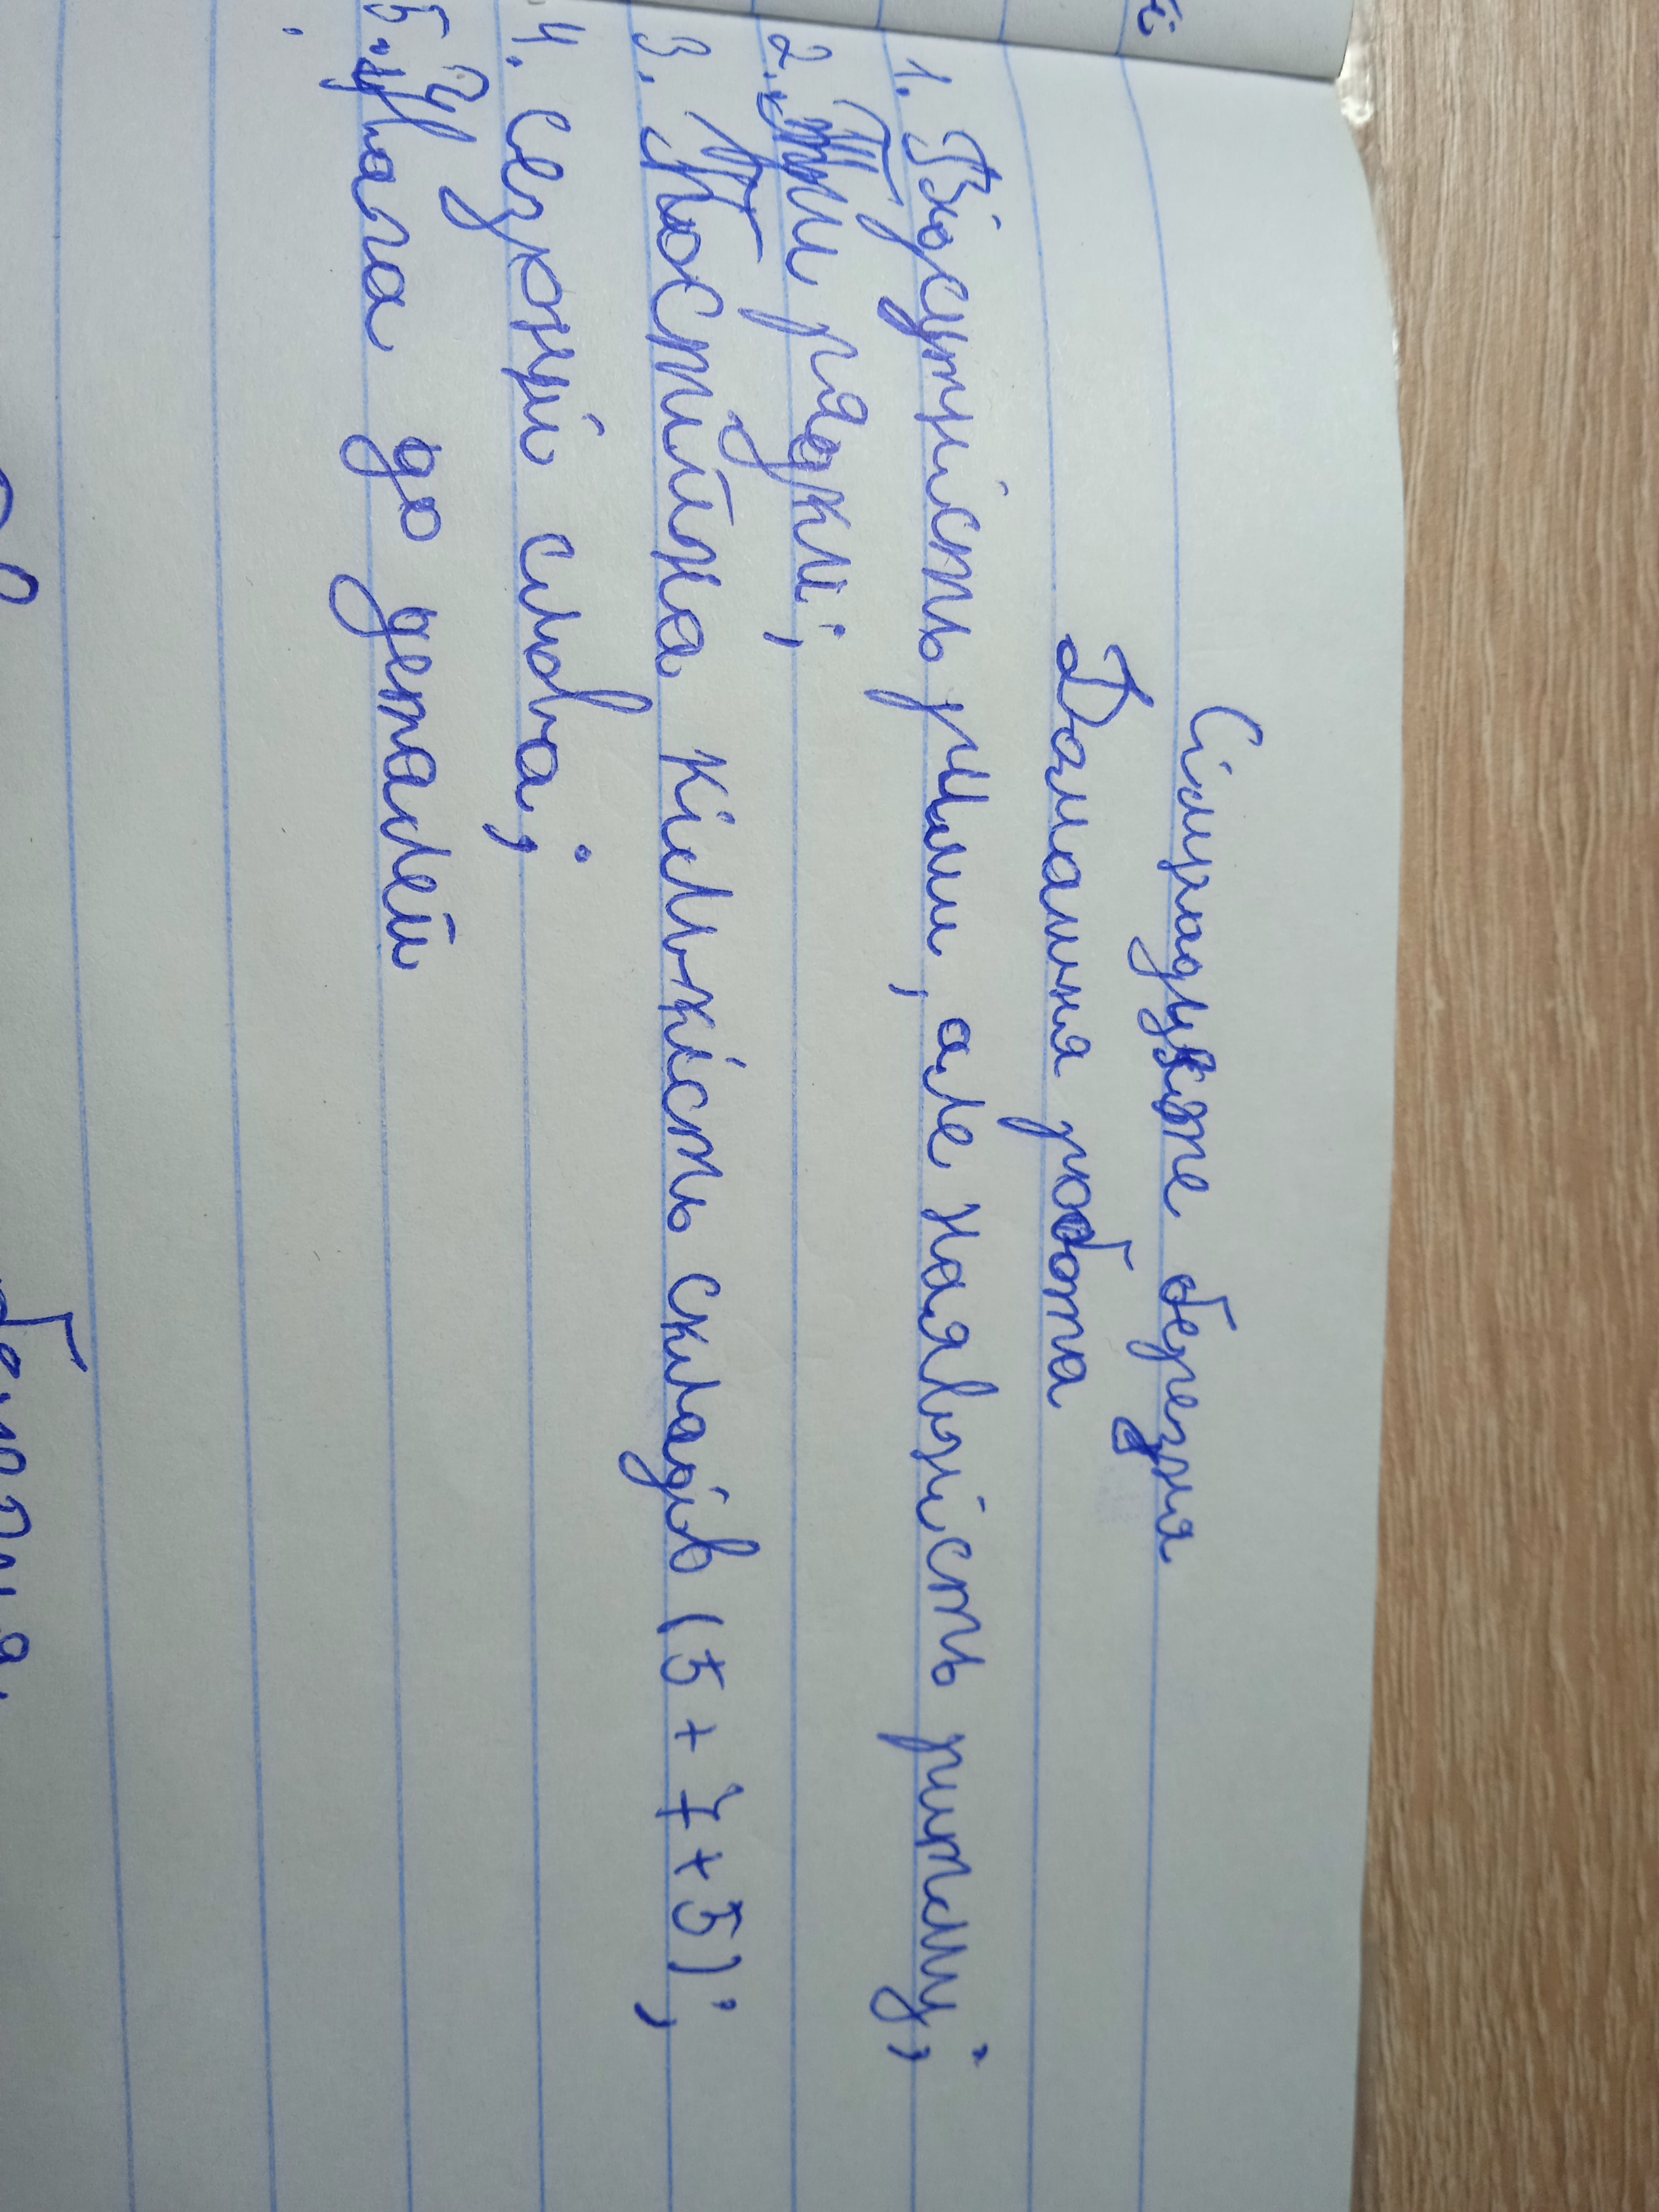 Сімнадцяте березня
Домашня робота
1. Відсутність рими, але наявність ритму;
2. Три рядки;
3. Постійна кількість складів (5 + 7 + 5);
4. сезонні слова;
5. Увага до деталей